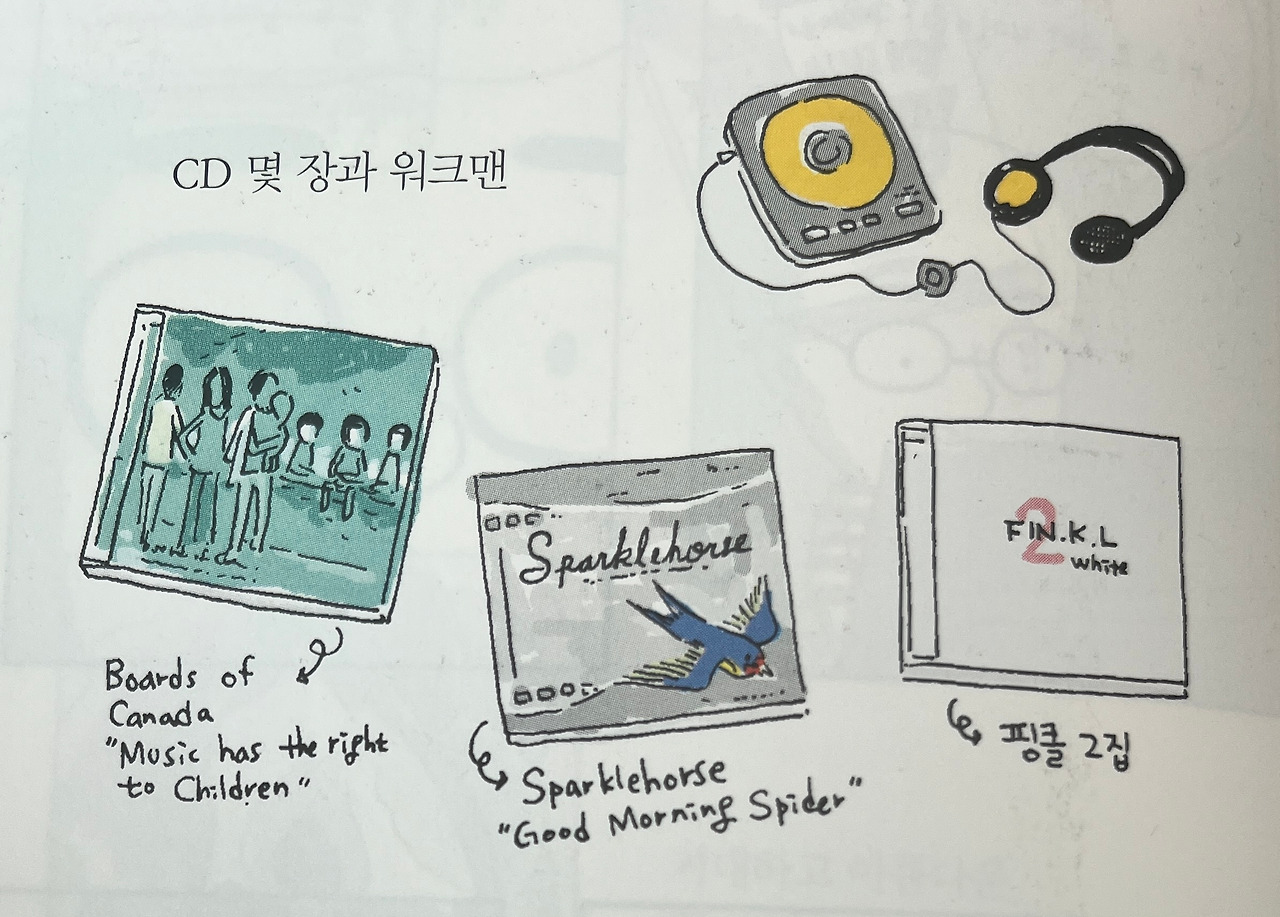 CD 몇 장과 워크맨
Boards of
Canada
"Music has the right
to Children"
Sparklehorse
Sparklehorse
"Good Morning Spider"
2
FIN.K.L
white
핑클 2집